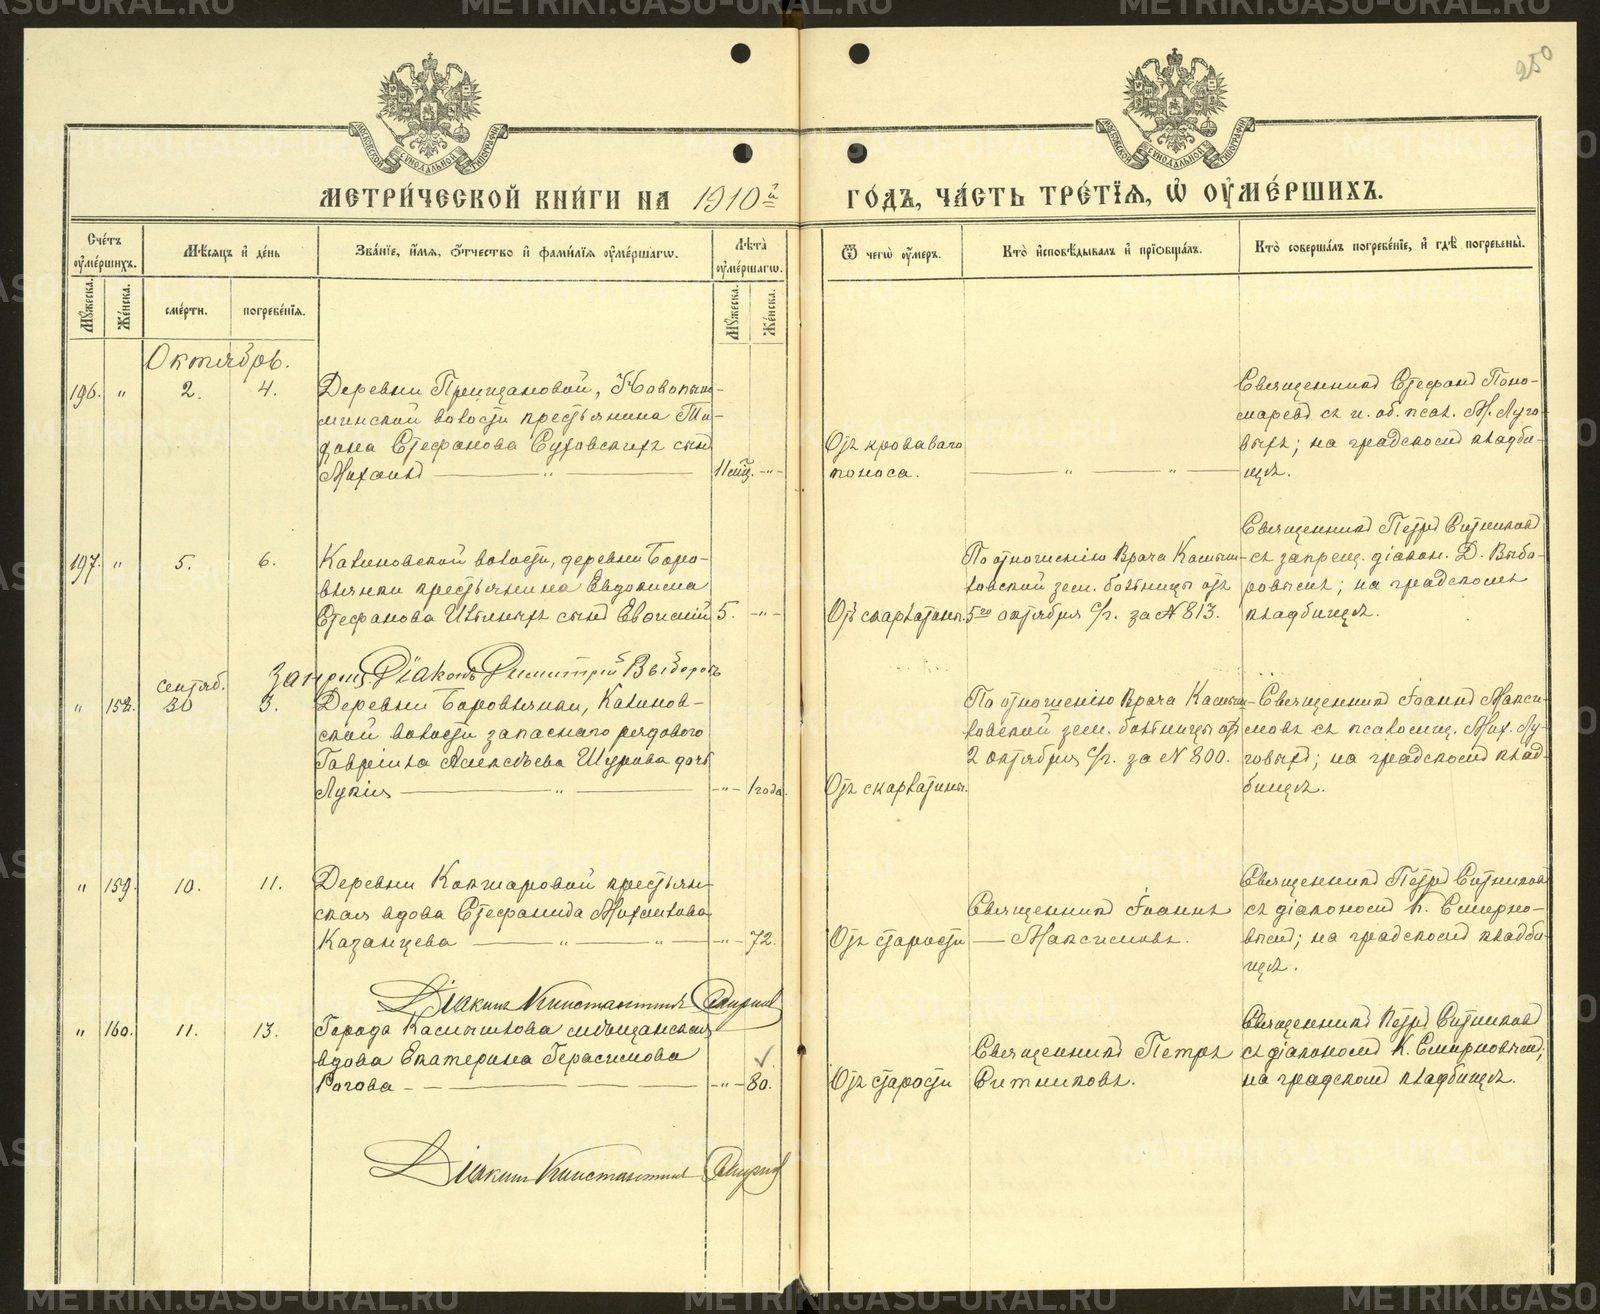 250
МОСКОВСКОЙ СѴНОДАЛЬНОЙ ТИПОГРАФІИ
МОСКОВСКОЙ СѴНОДАЛЬНОЙ ТИПОГРАФІИ
МЕТРИ́ЧЕСКОЙ КНИ́ГИ НА 1910й ГО́ДЪ, ЧА́СТЬ ТРЕ́ТІѦ, Ѡ҆ ОУ҆МЕ́РШИХЪ.
Сче́тъ оу҆ме́ршихъ.
Мѣ́сяцъ и҆ де́нь
Зва́ніе, и҆́мя, ѻ҆́тчество и҆ фами́лія оу҆ме́ршагѡ.
Лѣ́та оу҆ме́ршагѡ.
Ѿ чегѡ̀ оу҆́меръ.
Кто̀ и҆сповѣ́дывалъ и҆ пріѡбща́лъ.
Кто̀ соверша́лъ погребе́ніе, и҆ гдѣ̀ погребены̀.
Мꙋ́жеска.
Же́нска.
сме́рти.
погребе́нія.
Мꙋ́жеска.
Же́нска.
Октябрь.
196. " 2. 4.
Деревни Прищановой, Новопыш-
минской волости крестьянина
Стефанова Суховскихъ сынъ
Михаилъ — " — 11 мѣц. - " -
Отъ кроваваго
поноса.
— " — " —
Священникъ Стефанъ Поно-
маревъ съ и. об. псал. М. Луго-
выхъ; на градскомъ кладби-
щѣ.
197. " 5. 6.
Калиновской волости, деревни Боро-
влянки крестьянина Евдокима
Стефанова Ильиныхъ сынъ 5. - " -
Отъ скарлатины.
По отношенію Врача Камыш-
ловской зем. больницы отъ
5го октября с/г. за № 813.
Священникъ Петръ Ситниковъ
съ запрещ. діакон. Д. Выбо-
ровымъ; на градскомъ
кладбищѣ.
Запрещ. Діаконъ Димитрій Выборовъ
" 158. сентяб. 30 3.
Деревни Боровлянки, Калинов-
ской волости запаснаго рядового
Гавріила Алексѣева Шурова дочь
Лукія — " — - " - 1 года.
Отъ скарлатины.
По отношенію Врача Камыш-
ловской зем. больницы отъ
2 октября с/г. за № 800.
Священникъ Іоаннъ Макси-
мовъ съ псаломщ. Мих. Лу-
говыхъ; на градскомъ клад-
бищѣ.
" 159. 10. 11.
Деревни Кокшаровой крестьян-
ская вдова Стефанида Михаилова
Казанцева — " — " — - " - 72.
Отъ старости
Священникъ Іоаннъ
— Максимовъ.
Священникъ Петръ Ситниковъ
съ діакономъ К. Смирно-
вымъ; на градскомъ кладби-
щѣ.
Діаконъ Константинъ Смирновъ
" 160. 11. 13.
Города Камышлова мѣщанская
вдова Екатерина Герасимова
Рогова — - " - 80.
Отъ старости
Священникъ Петръ
Ситниковъ.
Священникъ Петръ Ситниковъ
съ діакономъ К. Смирновымъ;
на градскомъ кладбищѣ.
Діаконъ Константинъ Смирновъ
METRIKI.GASU-URAL.RU